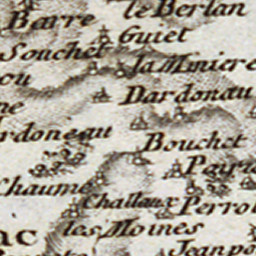 Barre
le Berlan
Souchet
Guiet
la Miniere
ou
Dardonau
ne
rdoneau
Bouchet
Chaume
Challaux
Perro
ac
les Moines
Jeanpo